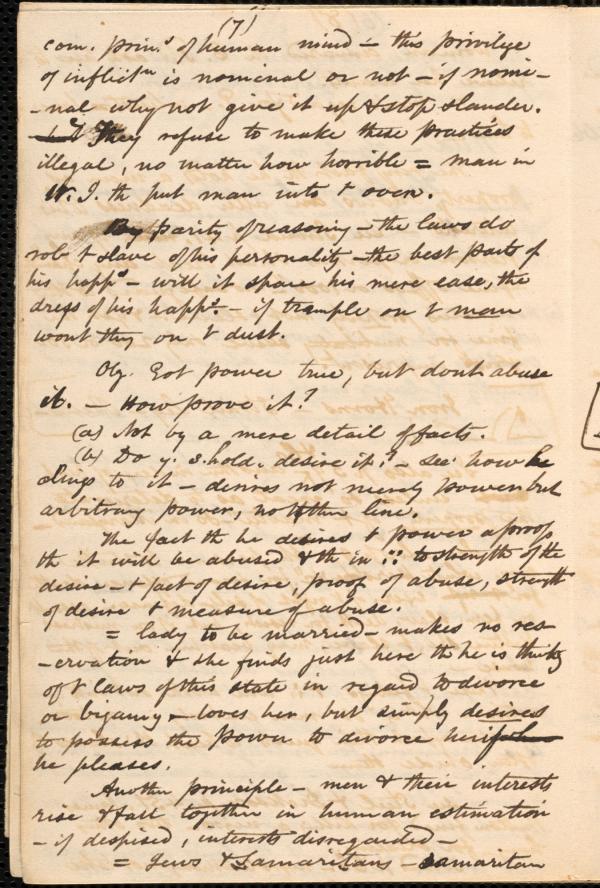 (7)
com. prin.s of human mind – this privilege
of inflictn is nominal or not – if nomi-
-nal why not give it up & stop slander.
They refuse to make these practices
illegal, no matter how horrible = man in
W. I. th put man into t oven.
By parity of reasoning – the laws do
rob t slave of his personality – the best parts of
his happs – will it spare his mere ease, the
dress of his happs. – if trample on t man
wont they on t dust.
Obj. Got power true, but dont abuse
it. – How prove it?
(a) Not by a mere detail of facts.
(b) Do y. s.hold. desire it? – see how he
clings to it – desires not merely power but
arbitrary power, no other line.
The fact th he desires t power a proof
th it will be abused & th in :: to strength of the
desire – t fact of desire, proof of abuse, strength
of desire t measure of abuse.
= lady to be married – makes no res-
-ervation & she finds just here th he is thinkg
of t laws of this state in regard to divorce
or bigamy – loves her, but simply desires
to possess the power to divorce her if
he pleases.
Another principle – men & their interests
rise & fall together in human estimation
– if despised, interests disregarded –
= Jews & Samaritans – Samaritan